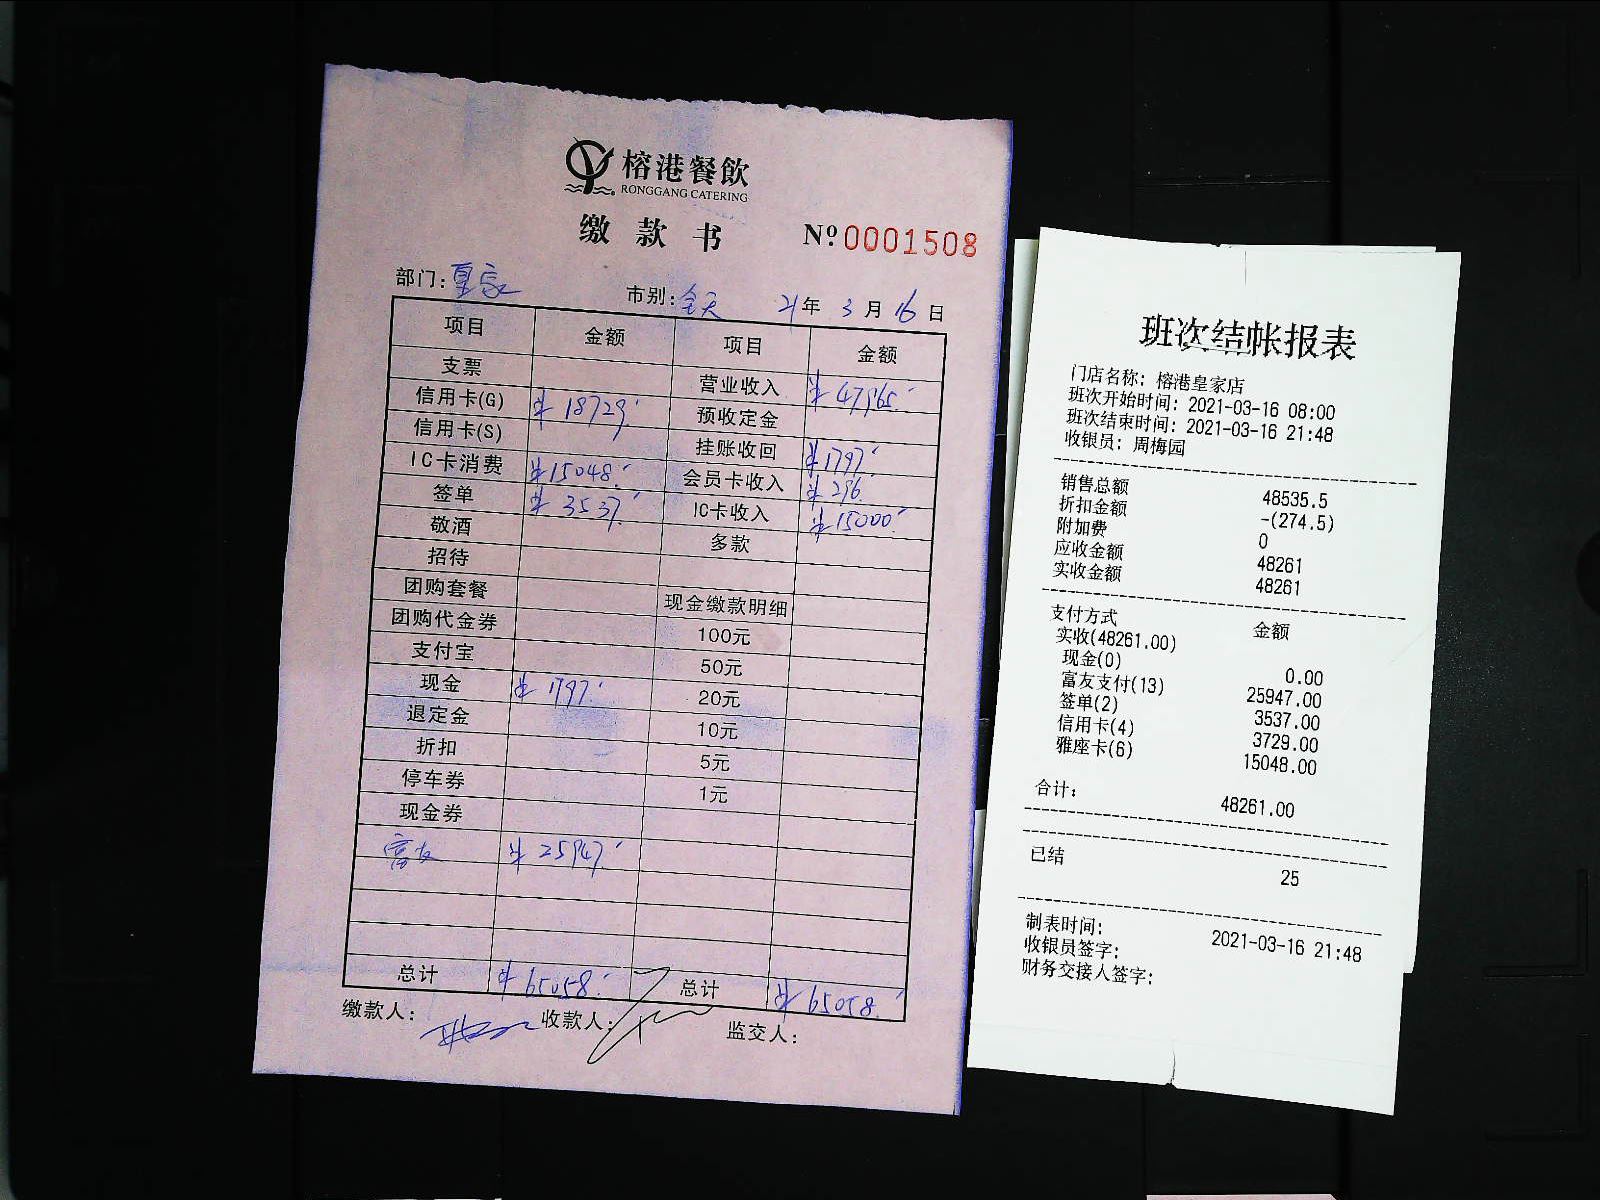 榕港餐飲
RONGGANG CATERING
缴款书 Nº 0001508
部门：皇家 市别：全天 21年 3月 16日
项目 金额 项目 金额
支票 营业收入 ¥47965.
信用卡(G) ¥18729. 预收定金
信用卡(S) 挂账收回 ¥1797.
IC卡消费 ¥15048. 会员卡收入 ¥296.
签单 ¥3537. IC卡收入 ¥15000
敬酒 多款
招待
团购套餐 现金缴款明细
团购代金券 100元
支付宝 50元
现金 ¥1797. 20元
退定金 10元
折扣 5元
停车券 1元
现金券
富友 ¥25947.
总计 ¥65058. 总计 ¥65058.
缴款人： 收款人： 监交人：
班次结帐报表
门店名称：榕港皇家店
班次开始时间：2021-03-16 08:00
班次结束时间：2021-03-16 21:48
收银员：周梅园
销售总额 48535.5
折扣金额 -(274.5)
附加费 0
应收金额 48261
实收金额 48261
支付方式 金额
实收(48261.00)
现金(0) 0.00
富友支付(13) 25947.00
签单(2) 3537.00
信用卡(4) 3729.00
雅座卡(6) 15048.00
合计： 48261.00
已结 25
制表时间： 2021-03-16 21:48
收银员签字：
财务交接人签字：